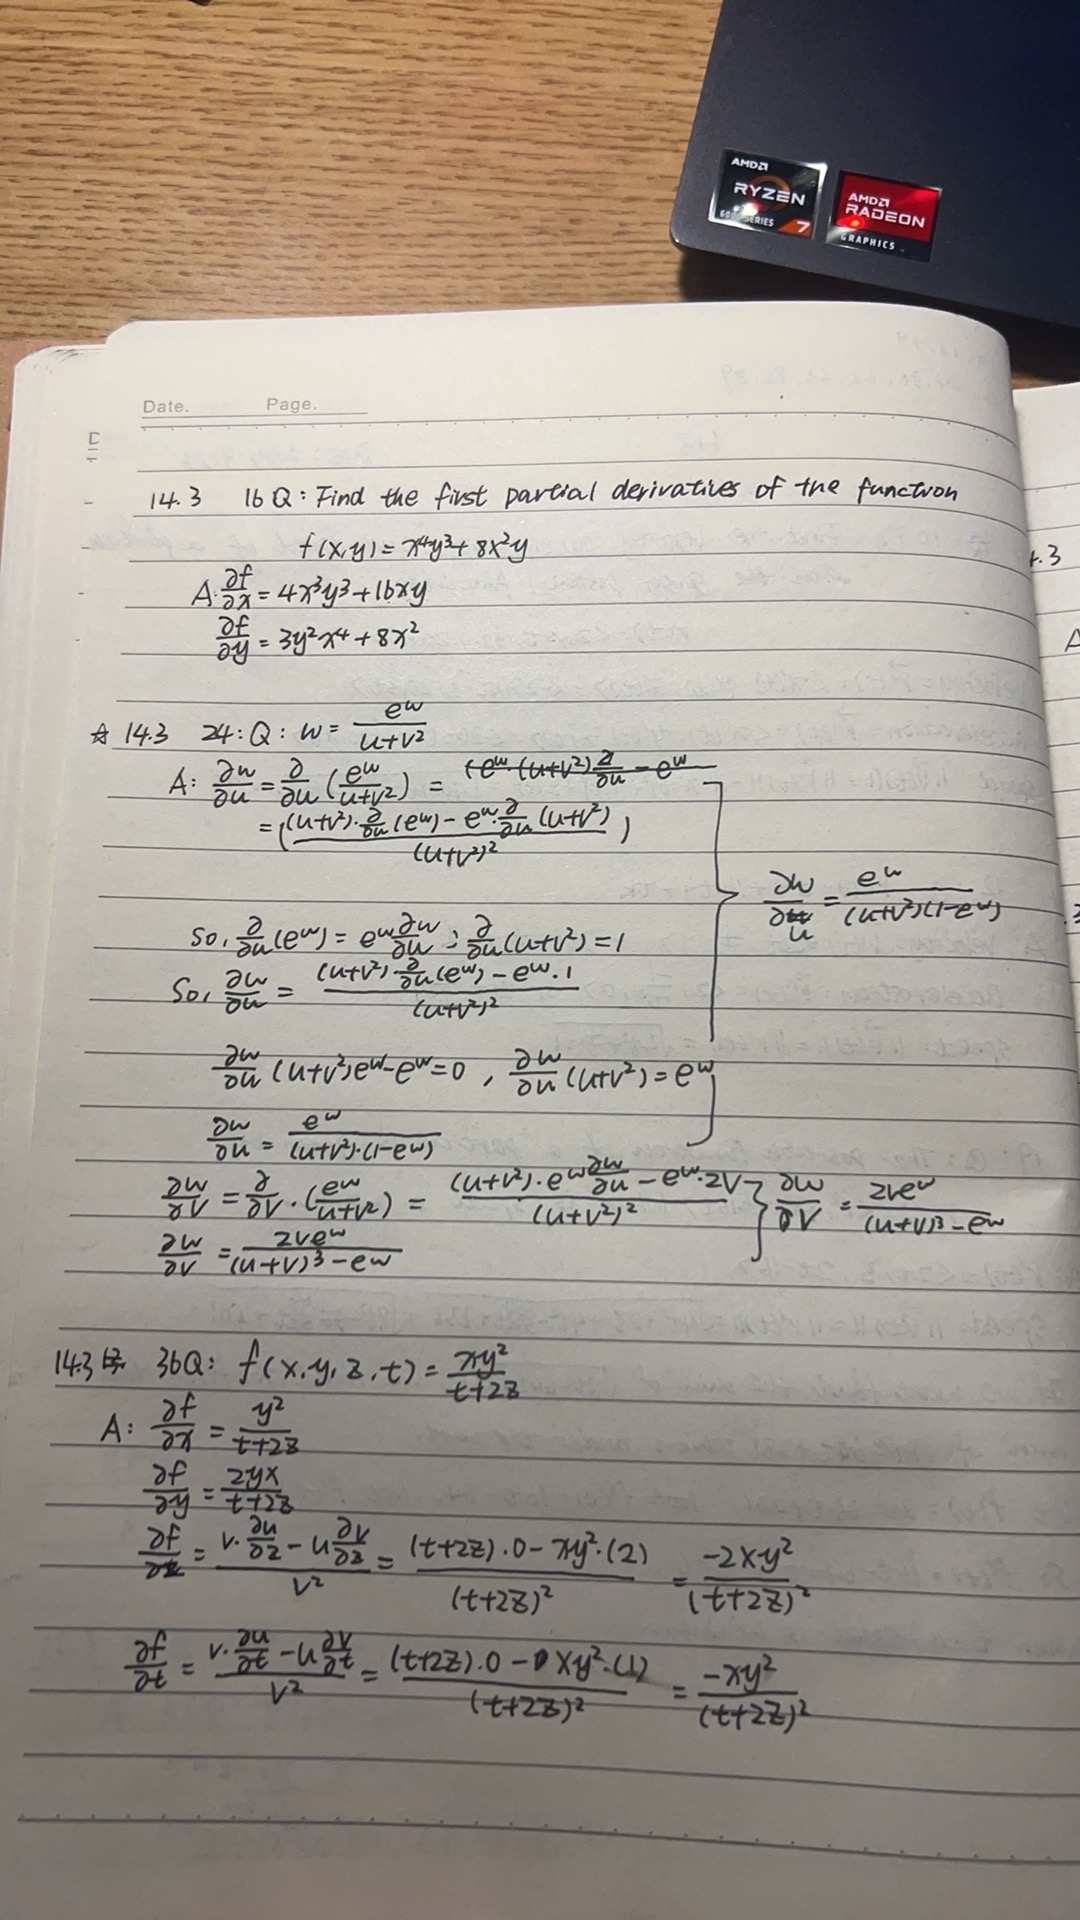 AMD
RYZEN
6000 SERIES 7
AMD
RADEON
GRAPHICS
Date. Page.
14.3 16Q: Find the first partial derivatives of the function
f(x,y) = x⁴y³ + 8x²y
A. ∂f/∂x = 4x³y³ + 16xy
∂f/∂y = 3y²x⁴ + 8x²
☆ 14.3 24: Q: w = e^w/(u+v²)
A: ∂w/∂u = ∂/∂u (e^w/(u+v²)) =
= ((u+v²)·∂/∂u(e^w) - e^w·∂/∂u(u+v²))/(u+v²)²
∂w/∂u = e^w/((u+v²)(1-e^w))
So, ∂/∂u(e^w) = e^w ∂w/∂u ; ∂/∂u(u+v²) = 1
So, ∂w/∂u = ((u+v²)·∂/∂u(e^w) - e^w·1)/(u+v²)²
∂w/∂u (u+v²)e^w - e^w = 0 , ∂w/∂u (u+v²) = e^w
∂w/∂u = e^w/((u+v²)·(1-e^w))
∂w/∂v = ∂/∂v·(e^w/(u+v²)) = ((u+v²)·e^w ∂w/∂u - e^w·2v)/(u+v²)² } ∂w/∂v = 2ve^w/((u+v)³ - e^w)
∂w/∂v = 2ve^w/((u+v)³ - e^w)
14.3 36Q: f(x,y,z,t) = xy²/(t+2z)
A: ∂f/∂x = y²/(t+2z)
∂f/∂y = 2yx/(t+2z)
∂f/∂z = (v·∂u/∂z - u ∂v/∂z)/v² = ((t+2z)·0 - xy²·(2))/(t+2z)² = -2xy²/(t+2z)²
∂f/∂t = (v·∂u/∂t - u ∂v/∂t)/v² = ((t+2z)·0 - xy²·(1))/(t+2z)² = -xy²/(t+2z)²